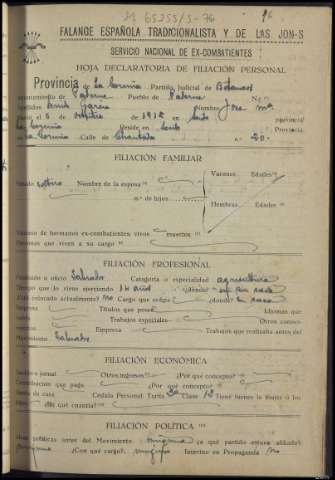 21 65255/5-76
FALANGE ESPAÑOLA TRADICIONALISTA Y DE LAS JON-S
SERVICIO NACIONAL DE EX-COMBATIENTES
HOJA DECLARATORIA DE FILIACIÓN PERSONAL
Provincia de La Coruña Partido Judicial de Betanzos
Pueblo de
García Nombre Jose Mª
el 5 de Octubre de 1912 en
La Coruña Reside en Provincia
La Coruña Calle de Chantada n.º 20.
FILIACIÓN FAMILIAR
soltero Nombre de la esposa Varones Edades
n.º de hijos
Hembras Edades
Número de hermanos ex-combatientes vivos muertos
Personas que viven a su cargo
FILIACIÓN PROFESIONAL
Profesión u oficio Labrador Categoría o especialidad agricultura
Tiempo que lo viene ejerciendo 10 años ¿dónde? en su casa
¿Está colocado actualmente? no Cargo que ocupa ¿dónde? en casa
Títulos que posee Idiomas que
Trabajos especiales Otros conoci-
Empresa Trabajos que realizaba antes del
Movimiento Labrador
FILIACIÓN ECONÓMICA
Otros ingresos ¿Por qué concepto?
Contribución que paga ¿Por qué concepto?
de casa Cédula Personal Tarifa 3ª Clase 13 Tiene bienes la esposa o los
hijos ¿En qué cuantía?
FILIACIÓN POLÍTICA
políticas antes del Movimiento ninguna ¿a qué partido estuvo afiliado?
ninguno ¿Con qué cargo? ninguno Intervino en Propaganda no